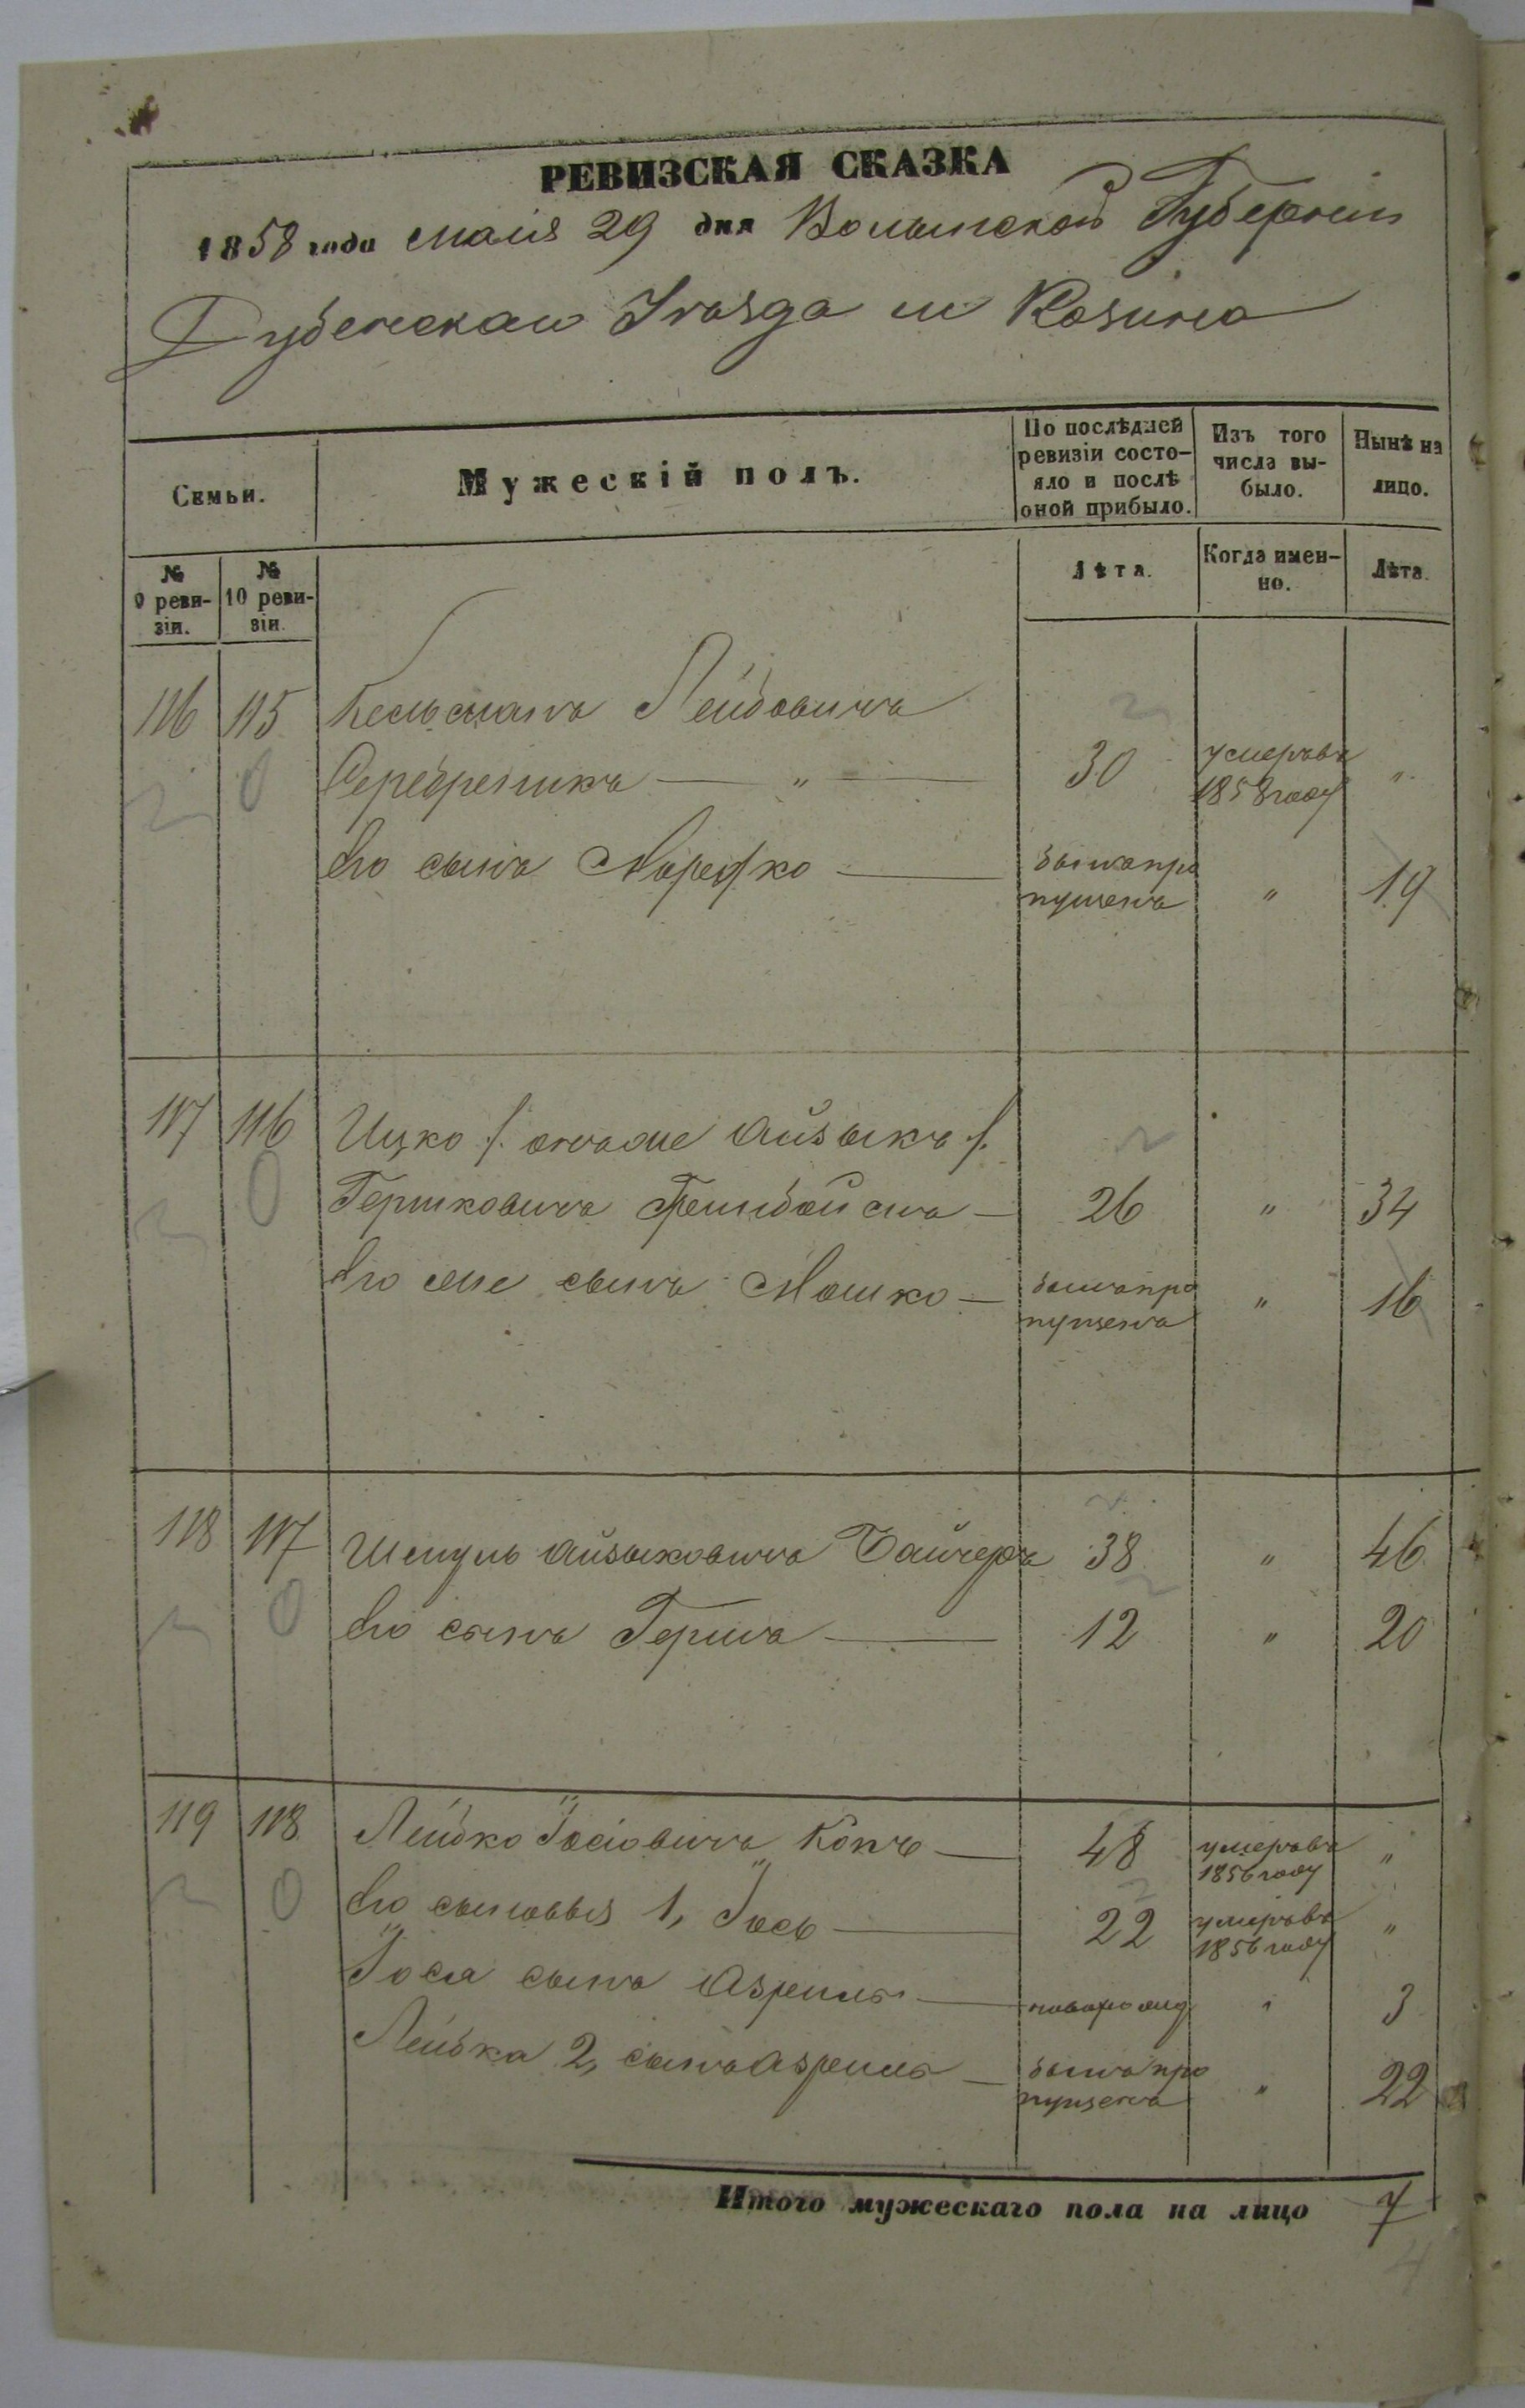 РЕВИЗСКАЯ СКАЗКА
1858 года маія 29 дня Волынской Губерніи
Дубенскаго Уѣзда м Козина
Семьи.
Мужескій полъ.
По послѣдней ревизіи состояло и послѣ оной прибыло.
Изъ того числа выбыло.
Нынѣ на лицо.
№ 9 ревизіи.
№ 10 ревизіи.
Лѣта.
Когда именно.
Лѣта.
116 115 Кельманъ Лейбовичъ
Серебреникъ — " — 30 умеръ въ 1858 году "
Его сынъ — былъ пропущенъ " 19
117 116 Ицко /. онъ же Айзыкъ /.
Гершковичъ — 26 " 34
Его же сынъ Мошко — былъ пропущенъ " 16
118 117 Шмуль Айзыковичъ 38 " 46
Его сынъ Герша — 12 " 20
119 118 Лейбко Іосіовичъ Копъ — 48 умеръ въ 1856 году "
Его сыновья 1, Іось — 22 умеръ въ 1856 году "
Іося сынъ Азриль — новорожд " 3
Лейбка 2, сынъ Азриль — былъ пропущенъ " 22
Итого мужескаго пола на лицо 7
4